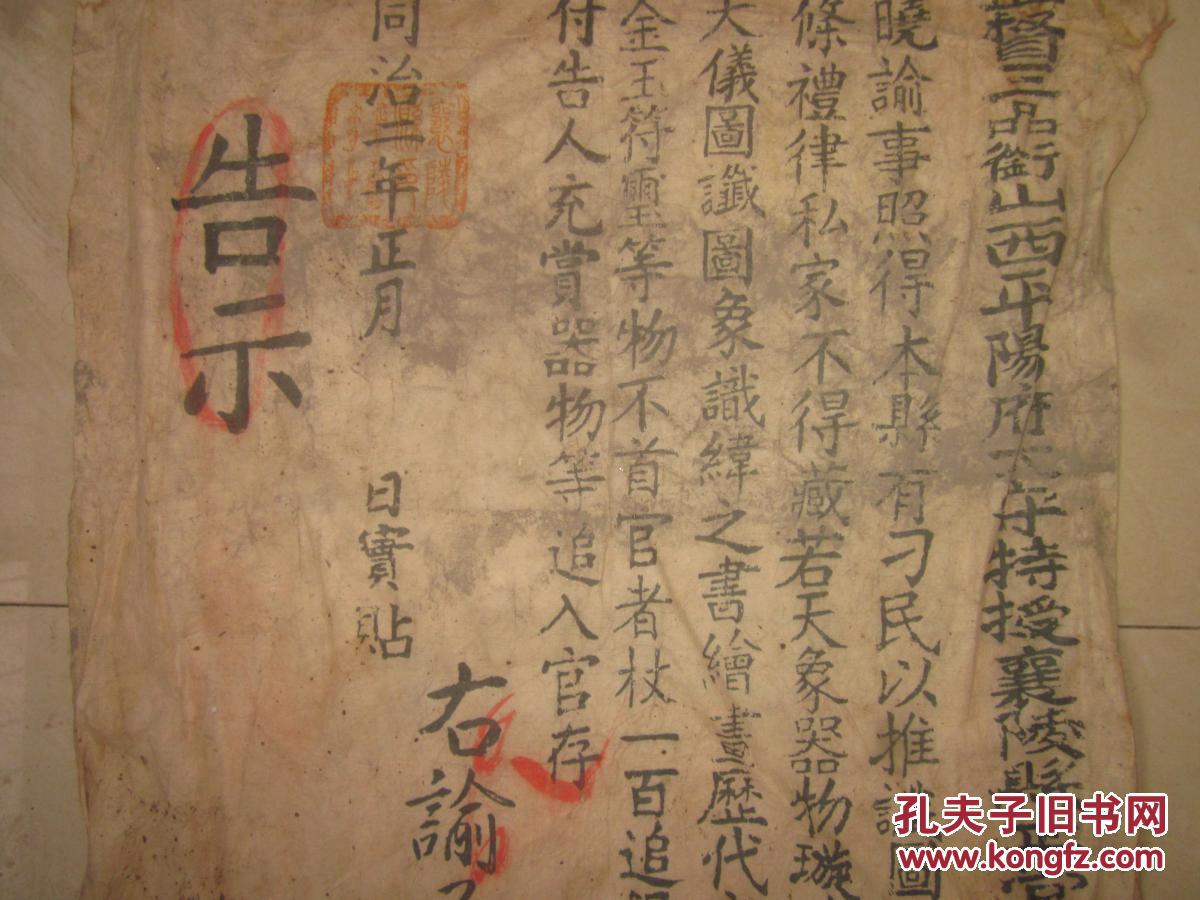 督三品銜山西平陽府太平特授襄陵縣正
曉諭事照得本縣有刁民以推讖圖
條禮律私家不得藏若天象器物璇
大儀圖讖圖象識緯之書繪畫歷代
金玉符璽等物不首官者杖一百追
付告人充賞器物等追入官存
右諭
同治二年正月 日實貼
告示
孔夫子旧书网
www.kongfz.com